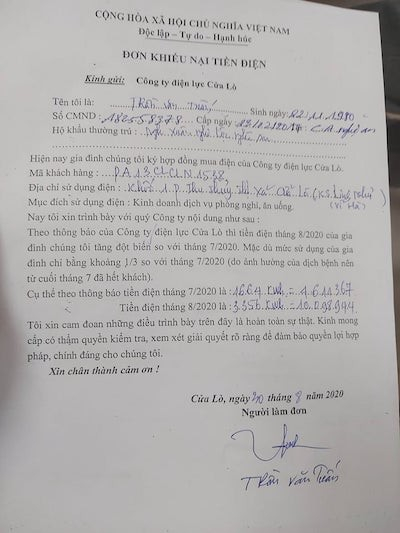 CỘNG HÒA XÃ HỘI CHỦ NGHĨA VIỆT NAM
Độc lập – Tự do – Hạnh húc
ĐƠN KHIẾU NẠI TIỀN ĐIỆN
Kính gửi: Công ty điện lực Cửa Lò
Tên tôi là: Trần Văn Tuấn Sinh ngày 02.11.1980
Số CMND : 182558378 Cấp ngày CA nghệ an
Hộ khẩu thường trú : Nghi Xuân nghi Lộc nghệ an
Hiện nay gia đình chúng tôi ký hợp đồng mua điện của Công ty điện lực Cửa Lò.
Mã khách hàng : PA13CLCLN1538,
Địa chỉ sử dụng điện : Khối 1. P. Thu thủy thị xã Cửa Lò
Mục đích sử dụng điện : Kinh doanh dịch vụ phòng nghỉ, ăn uống.
Nay tôi xin trình bày với quý Công ty nội dung như sau :
Theo thông báo của Công ty điện lực Cửa Lò thì tiền điện tháng 8/2020 của gia
đình chúng tôi tăng đột biến so với tháng 7/2020. Mặc dù mức sử dụng của gia
đình chỉ bằng khoảng 1/3 so với tháng 7/2020 (do ảnh hưởng của dịch bệnh nên
từ cuối tháng 7 đã hết khách).
Cụ thể theo thông báo tiền điện tháng 7/2020 là : 1664 kwh = 4.614.367
Tiền điện tháng 8/2020 là: 3.356 kwh = 10.098.944
Tôi xin cam đoan những điều trình bày trên đây là hoàn toàn sự thật. Kính mong
cấp có thẩm quyền kiểm tra, xem xét giải quyết rõ ràng để đảm bảo quyền lợi hợp
pháp, chính đáng cho chúng tôi.
Xin chân thành cảm ơn !
Cửa Lò, ngày 30 tháng 8 năm 2020
Người làm đơn
Trần Văn Tuấn